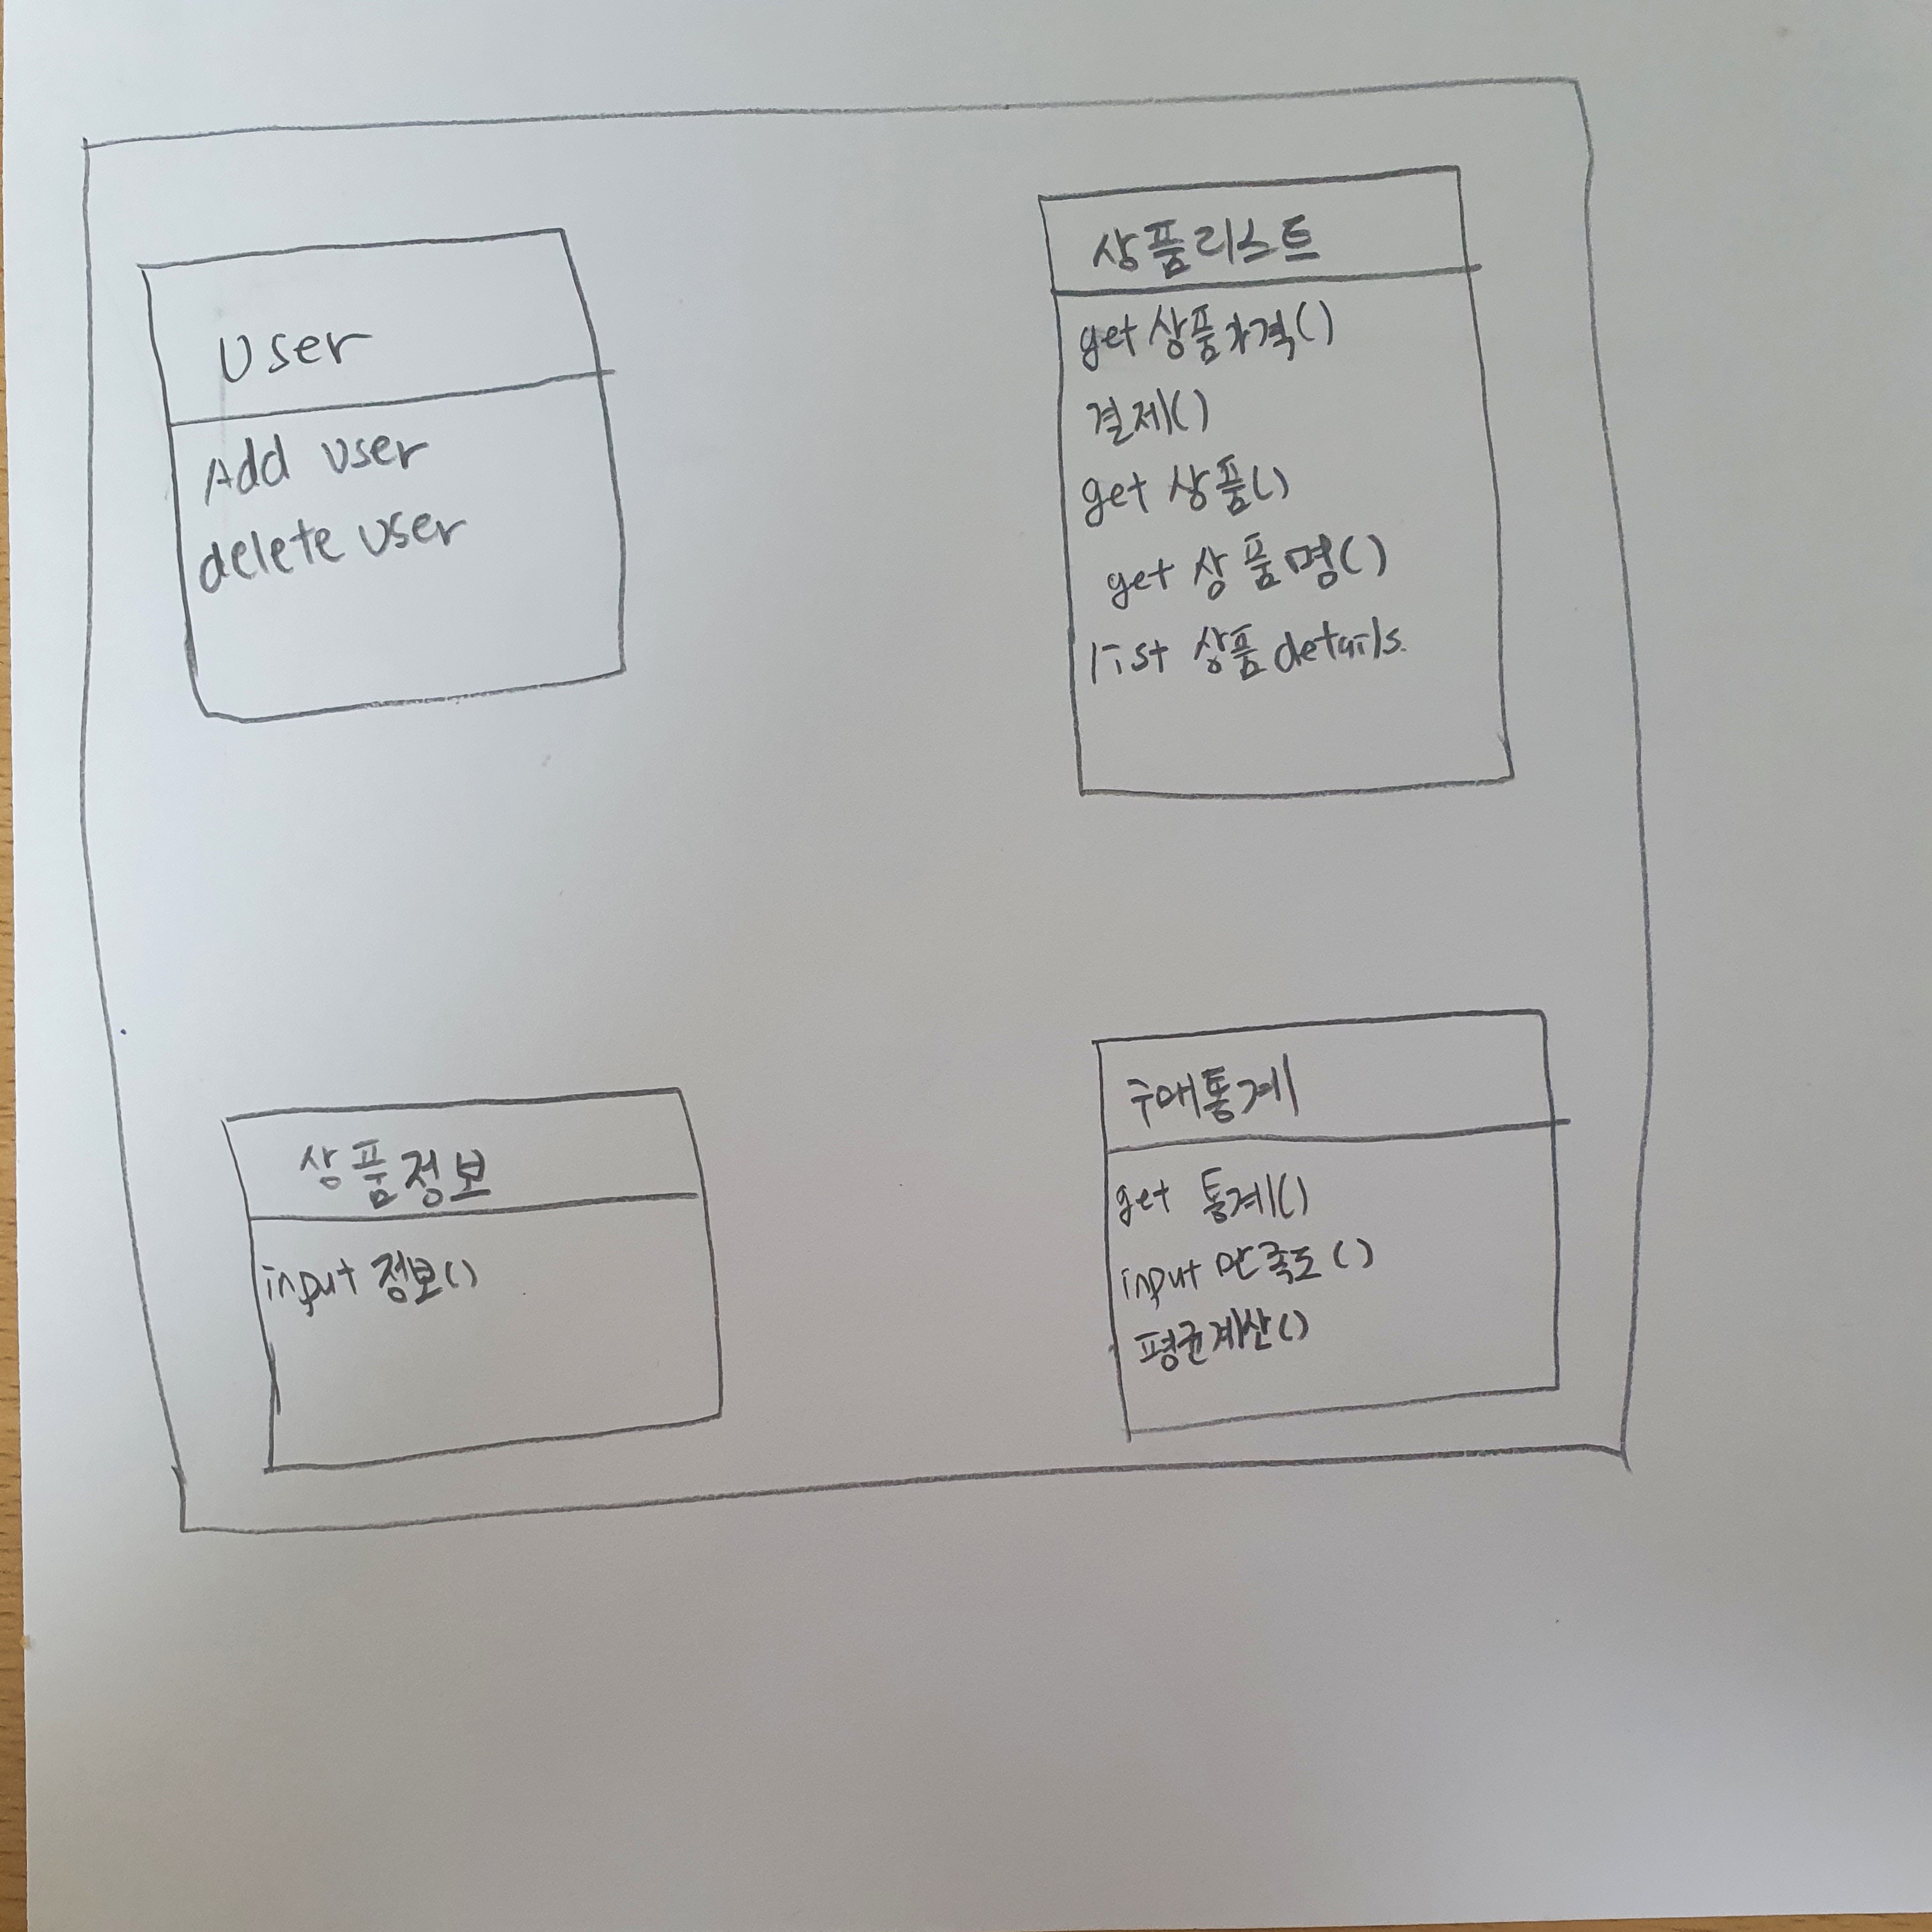 User
Add user
delete user
상품리스트
get 상품가격()
결제()
get 상품()
get 상품명()
list 상품 details.
상품정보
input 정보()
구매통계
get 통계()
input 만족도()
평균계산()